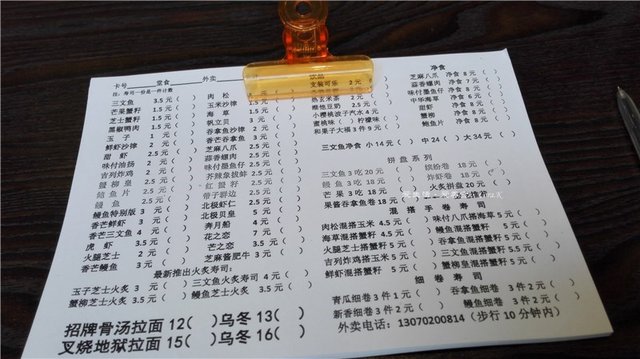 卡号 堂食 外卖
注：每列一份是一件计数
三文鱼 3.5元（ ）
芒果蟹籽 1.5元（ ）
芝士蟹籽 1.5元（ ）
黑椒鸭肉 2元（ ）
玉子 1元（ ）
鲜虾沙律 2元（ ）
甜虾 2.5元（ ）
味付油扬 2元（ ）
吉列炸鸡 2.5元（ ）
鳗柳皇 2.5元（ ）
鲔鱼片 2.5元（ ）
鳗鱼 2.5元（ ）
鳗鱼特别版 3元（ ）
香芒鲜虾 3元（ ）
香芒三文鱼 4元（ ）
虎虾 3.5元（ ）
火腿芝士 2元（ ）
香芒鳗鱼 3元（ ）
肉松 2元（ ）
玉米沙律 2元（ ）
海草 2元（ ）
帆立贝 3元（ ）
吞拿鱼沙律 2元（ ）
香芒吞拿鱼 3元（ ）
芝麻八爪 2.5元（ ）
蒜香螺肉 2.5元（ ）
味付墨鱼仔 2.5元（ ）
芥辣象拔蚌 2.5元（ ）
红蟹籽 2.5元（ ）
带子裙边 2.5元（ ）
北极虾仁 2.5元（ ）
北极贝皇 5元（ ）
奔月船 4元（ ）
花之恋 7元（ ）
芒之恋 3.5元（ ）
芝麻酱肥牛 3元（ ）
最新推出火炙寿司
玉子芝士火炙 3元（ ） 三文鱼火炙寿司 4元（ ）
蟹柳芝士火炙 3元（ ） 鳗鱼芝士火炙 3.5元（ ）
招牌骨汤拉面 12（ ）乌冬 13（ ）
叉烧地狱拉面 15（ ）乌冬 16（ ）
支装可乐 2元（ ）
热玄米茶 2元（ ）
维他豆奶 2.5元（ ）
小樱桃波子汽水 4元
蜜桃味（ ）柠檬味（ ）
和果子大福 3件 9元（ ）
净食
芝麻八爪 净食 8元（ ）
蒜香螺肉 净食 8元（ ）
味付墨鱼仔 净食 8元（ ）
中华海草 净食 6元（ ）
甜虾 净食 7元（ ）
蟹柳 净食 6元（ ）
鲔鱼片 净食 8元（ ）
三文鱼净食 小14（ ） 中24（ ）大34元（ ）
拼盘系列
三文鱼3吃 20元（ ） 缤纷卷 18元（ ）
鳗鱼3吃 18元（ ） 火炙虾卷 18元（ ）
芒果3吃 18元（ ） 火炙拼盘 20元（ ）
混搭手卷寿司
肉松混搭玉米 4.5元（ ） 味付八爪搭海草 5元（ ）
海草混搭蟹籽 5元（ ） 鳗鱼混搭蟹籽 5.5元（ ）
火腿芝士混搭蟹籽 5元（ ） 吞拿鱼混搭蟹籽 4.5元（ ）
吉列炸鸡混搭蟹籽 5.5元（ ） 三文鱼混搭蟹籽 5.5元（ ）
鲜虾混搭蟹籽 5元（ ） 蟹柳皇混搭蟹籽 5.5元（ ）
细卷寿司
青瓜细卷 3件 1元（ ） 吞拿鱼细卷 3件 2元（ ）
新香细卷 3件 2元（ ） 鳗鱼细卷 3件 3元（ ）
外卖电话：13070200814（步行10分钟内）